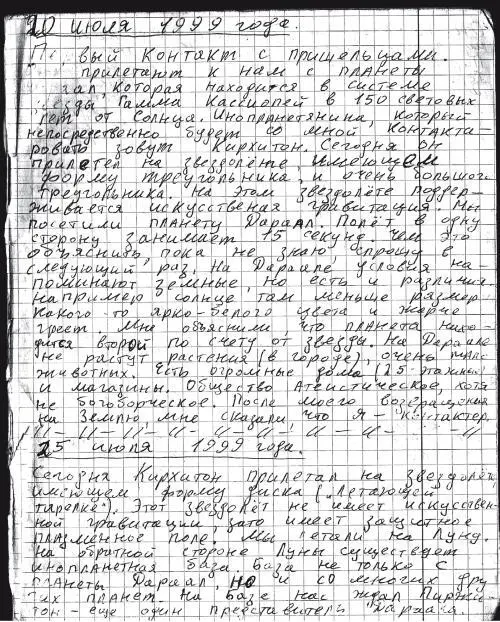 20 июля 1999 года.
Пе вый контакт с пришельцами.
прилетают к нам с планеты
которая находится в системе
Гамма Кассиопей в 150 световых
лет от Солнца. Инопланетянина, который
непосредственно будет со мной контакти-
ровать зовут Кирхитон. Сегодня он
прилетел на звездолёте имеющем
форму треугольника, и очень большого
треугольника. На этом звездолёте поддер-
живается искусственая гравитация. Мы
посетили планету Дараал. Полёт в одну
сторону занимает 15 секунд. Чем это
объяснить, пока не знаю, спрошу в
следующий раз. На Дараале условия на-
поминают земные, но есть и различия
например солнце там меньше размер
какого-то ярко-белого цвета и жарче
греет. Мне объяснили, что планета нахо-
дится второй по счету от звезды. На Дараале
не растут растения (в городе), очень мало
животных. Есть огромные дома (25-этажные
и магазины. Общество Атеистическое, хотя
не богоборческое. После моего возвращения
на Землю, мне сказали, что я - контактер.
25 июля 1999 года.
Сегодня Кирхитон прилетал на звездолёт
имеющем форму диска ("Летающей
тарелке"). Этот звездолёт не имеет искусствен-
ной гравитации зато имеет защитное
плазменное поле. Мы летали на Луну.
На обратной стороне Луны существует
инопланетная база. База не только с
планеты Дараал, но и со многих дру
гих планет. На базе нас ждал Пиржи-
тон - еще один представитель Дараала.